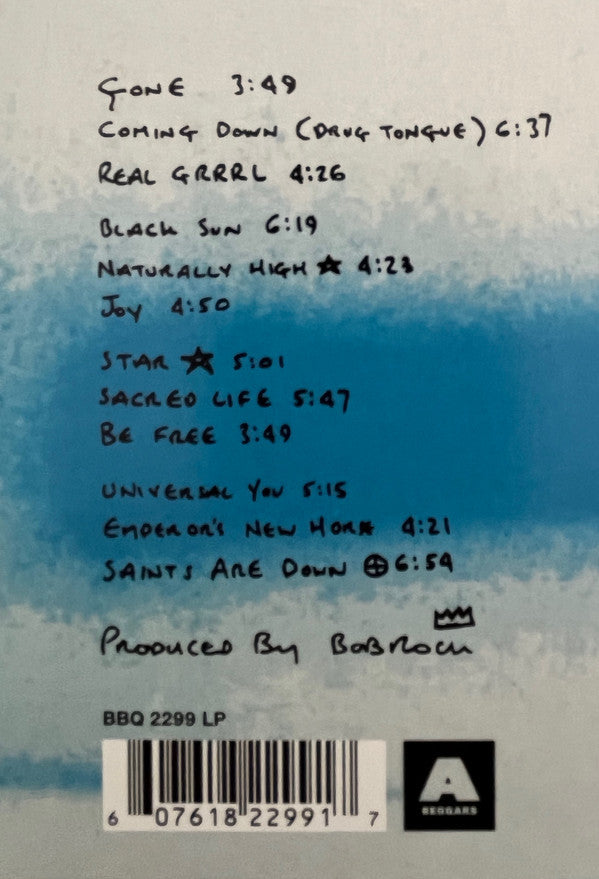 GONE 3:49
COMING DOWN (DRUG TONGUE) 6:37
REAL GRRRL 4:26
BLACK SUN 6:19
NATURALLY HIGH ★ 4:23
JOY 4:50
STAR ★ 5:01
SACRED LIFE 5:47
BE FREE 3:49
UNIVERSAL YOU 5:15
EMPEROR'S NEW HORN 4:21
SAINTS ARE DOWN ⊕ 6:54
PRODUCED BY BOB ROCK
BBQ 2299 LP
6 07618 22991 7
A
BEGGARS